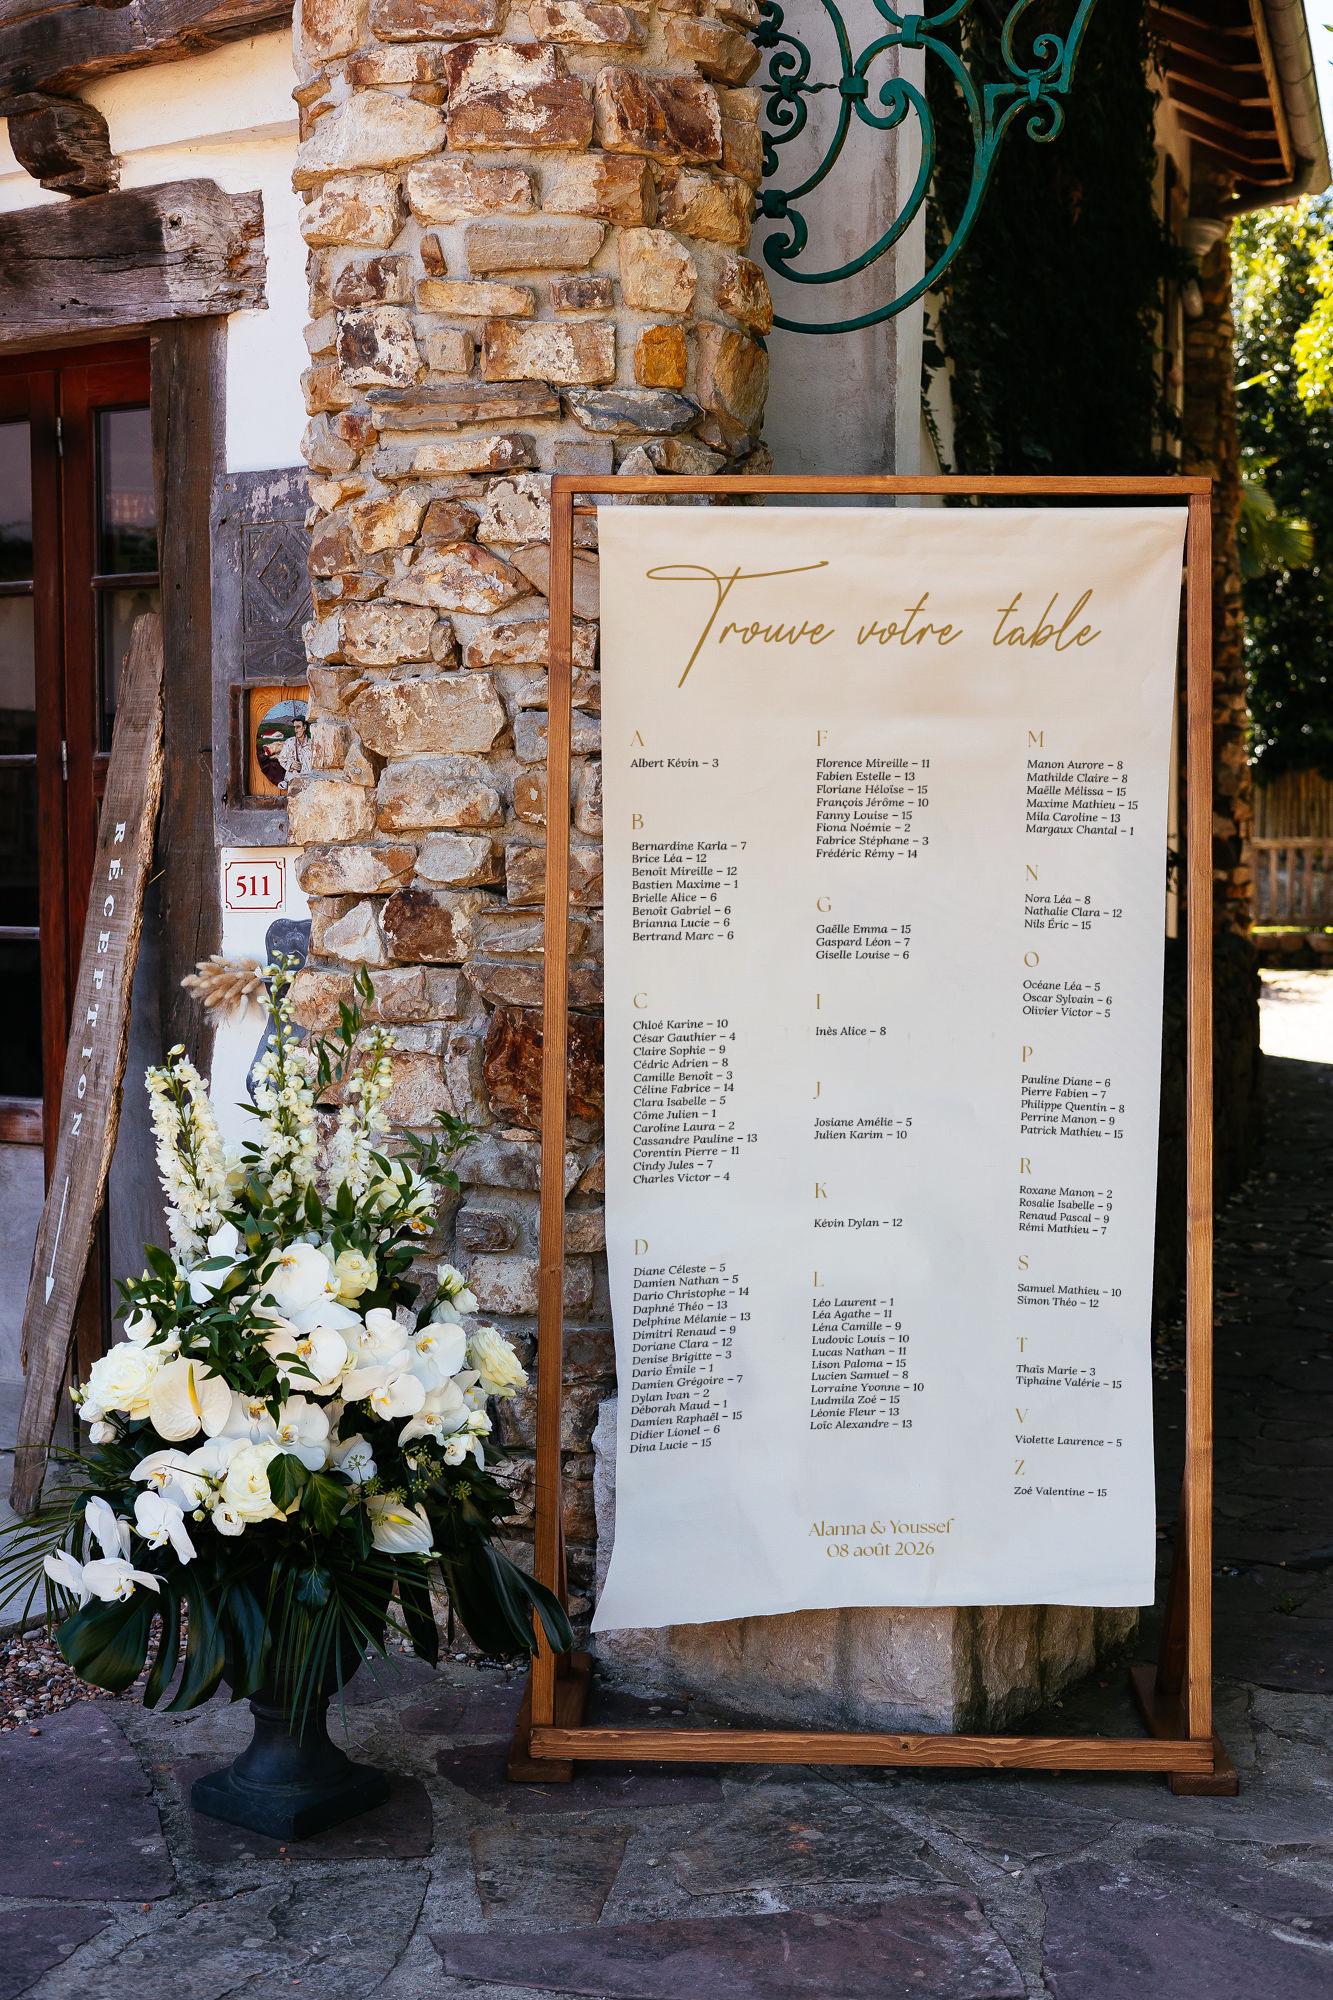 Trouve votre table
A
Albert Kévin – 3
B
Bernardine Karla – 7
Brice Léa – 12
Benoit Mireille – 12
Bastien Maxime – 1
Brielle Alice – 6
Benoît Gabriel – 6
Brianna Lucie – 6
Bertrand Marc – 6
C
Chloé Karine – 10
César Gauthier – 4
Claire Sophie – 9
Cédric Adrien – 8
Camille Benoît – 3
Céline Fabrice – 14
Clara Isabelle – 5
Côme Julien – 1
Caroline Laura – 2
Cassandre Pauline – 13
Corentin Pierre – 11
Cindy Jules – 7
Charles Victor – 4
D
Diane Céleste – 5
Damien Nathan – 5
Dario Christophe – 14
Daphné Théo – 13
Delphine Mélanie – 13
Dimitri Renaud – 9
Doriane Clara – 12
Denise Brigitte – 3
Dario Émile – 1
Damien Grégoire – 7
Dylan Ivan – 2
Déborah Maud – 1
Damien Raphaël – 15
Didier Lionel – 6
Dina Lucie – 15
F
Florence Mireille – 11
Fabien Estelle – 13
Floriane Héloïse – 15
François Jérôme – 10
Fanny Louise – 15
Fiona Noémie – 2
Fabrice Stéphane – 3
Frédéric Rémy – 14
G
Gaëlle Emma – 15
Gaspard Léon – 7
Giselle Louise – 6
I
Inès Alice – 8
J
Josiane Amélie – 5
Julien Karim – 10
K
Kévin Dylan – 12
L
Léo Laurent – 1
Léa Agathe – 11
Léna Camille – 9
Ludovic Louis – 10
Lucas Nathan – 11
Lison Paloma – 15
Lucien Samuel – 8
Lorraine Yvonne – 10
Ludmila Zoé – 15
Léonie Fleur – 13
Loïc Alexandre – 13
M
Manon Aurore – 8
Mathilde Claire – 8
Maëlle Mélissa – 15
Maxime Mathieu – 15
Mila Caroline – 13
Margaux Chantal – 1
N
Nora Léa – 8
Nathalie Clara – 12
Nils Éric – 15
O
Océane Léa – 5
Oscar Sylvain – 6
Olivier Victor – 5
P
Pauline Diane – 6
Pierre Fabien – 7
Philippe Quentin – 8
Perrine Manon – 9
Patrick Mathieu – 15
R
Roxane Manon – 2
Rosalie Isabelle – 9
Renaud Pascal – 9
Rémi Mathieu – 7
S
Samuel Mathieu – 10
Simon Théo – 12
T
Thaïs Marie – 3
Tiphaine Valérie – 15
V
Violette Laurence – 5
Z
Zoé Valentine – 15
Alanna & Youssef
08 août 2026
511
RÉCEPTION